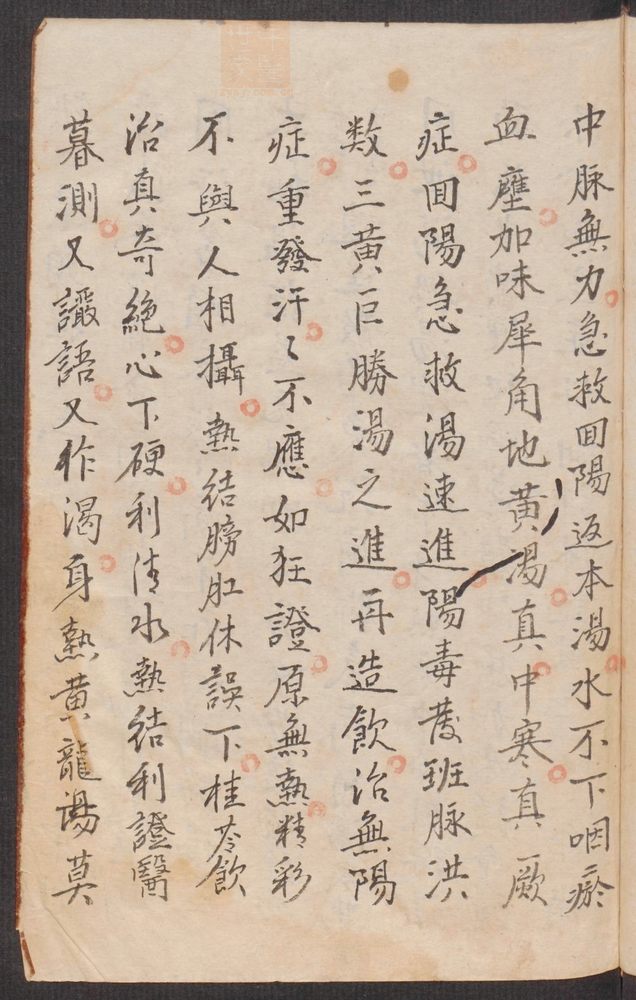 中脉無力急救回陽返本湯水不下咽瘀
血壅加味犀角地黃湯真中寒真厥
症回陽急救湯速進陽毒發班脉洪
数三黃巨勝湯之進再造飲治無陽
症重發汗〻不應如狂證原無熱精彩
不與人相攝熱結膀肛休誤下桂苓飲
治真奇絕心下硬利清水熱结利證醫
暮測又讝語又作渴身熱黄龍湯莫